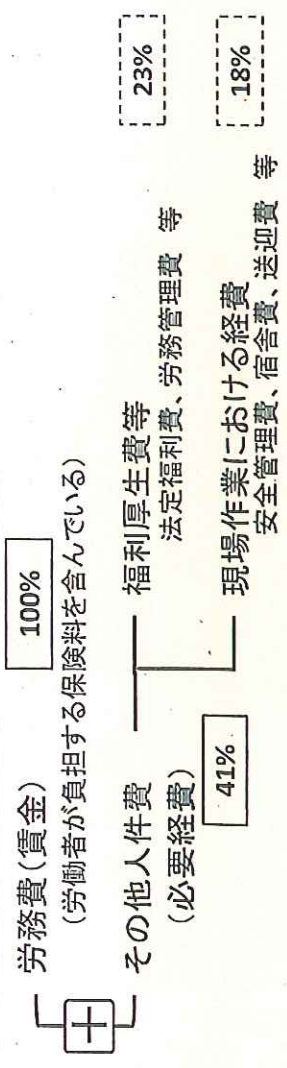 労務費(賃金) 100%
(労働者が負担する保険料を含んでいる)
＋
その他人件費
(必要経費)
41%
福利厚生費等 23%
法定福利費、労務管理費 等
現場作業における経費 18%
安全管理費、宿舎費、送迎費 等